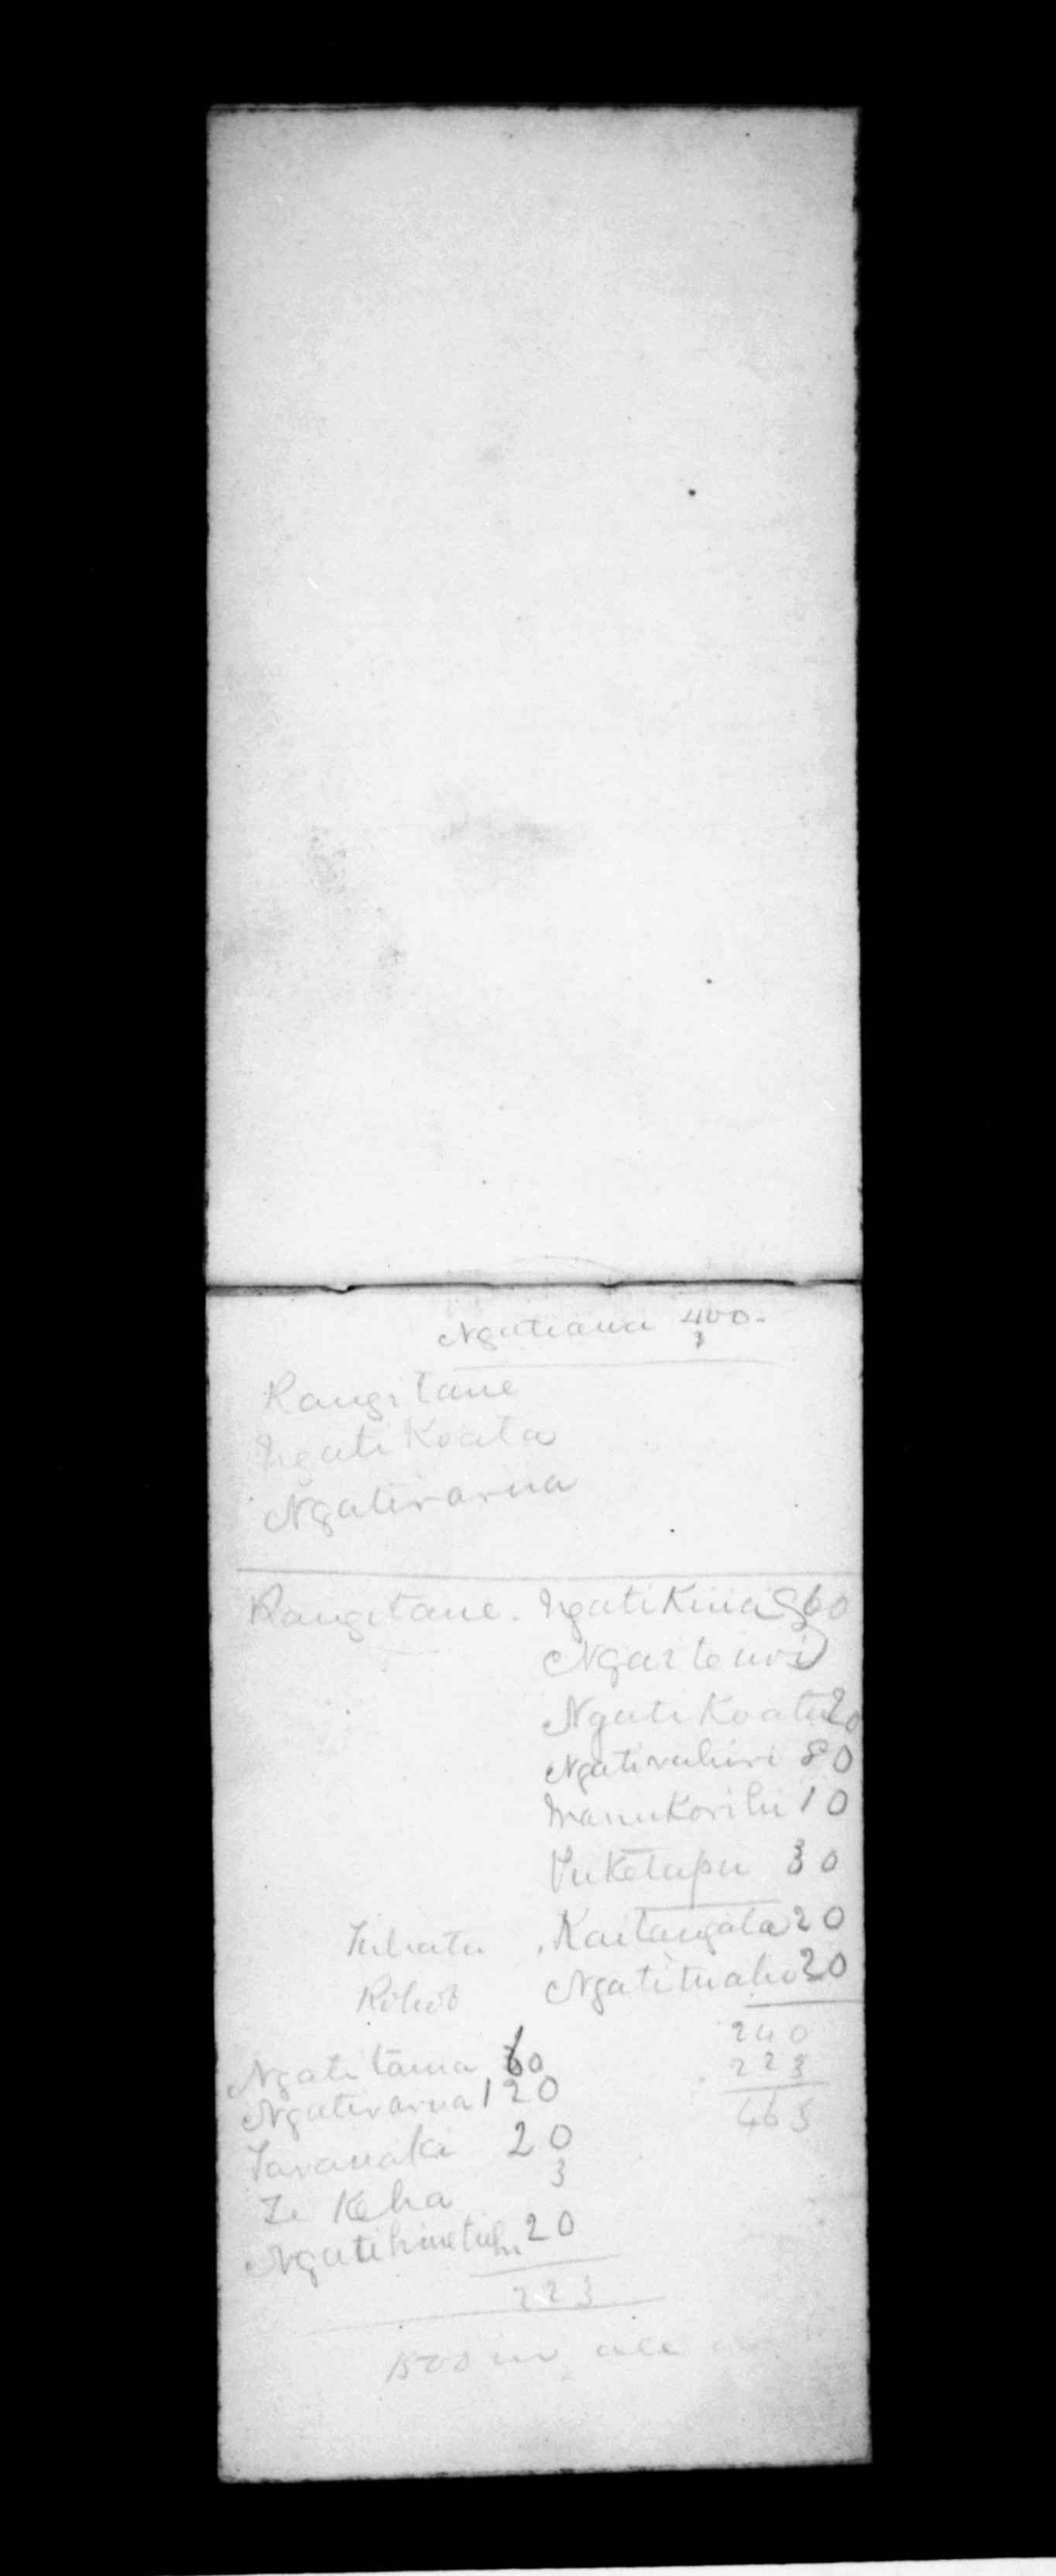 Ngatiawa 400.
3
Rangitane
Ngati Koata
Ngatirarua
Rangitane. Ngatikuia 60
Ngaitewi
Ngati Koata 20
Ngatirahiri 80
Manukorihi 10
Puketapu 30
Kaitangata 20
Ngatituaho 20
240
223
463
Ngatitama 60
Ngatirarua 120
Taranaki 20
Te Keha 3
Ngatihinetuhi 20
223
1500 in all